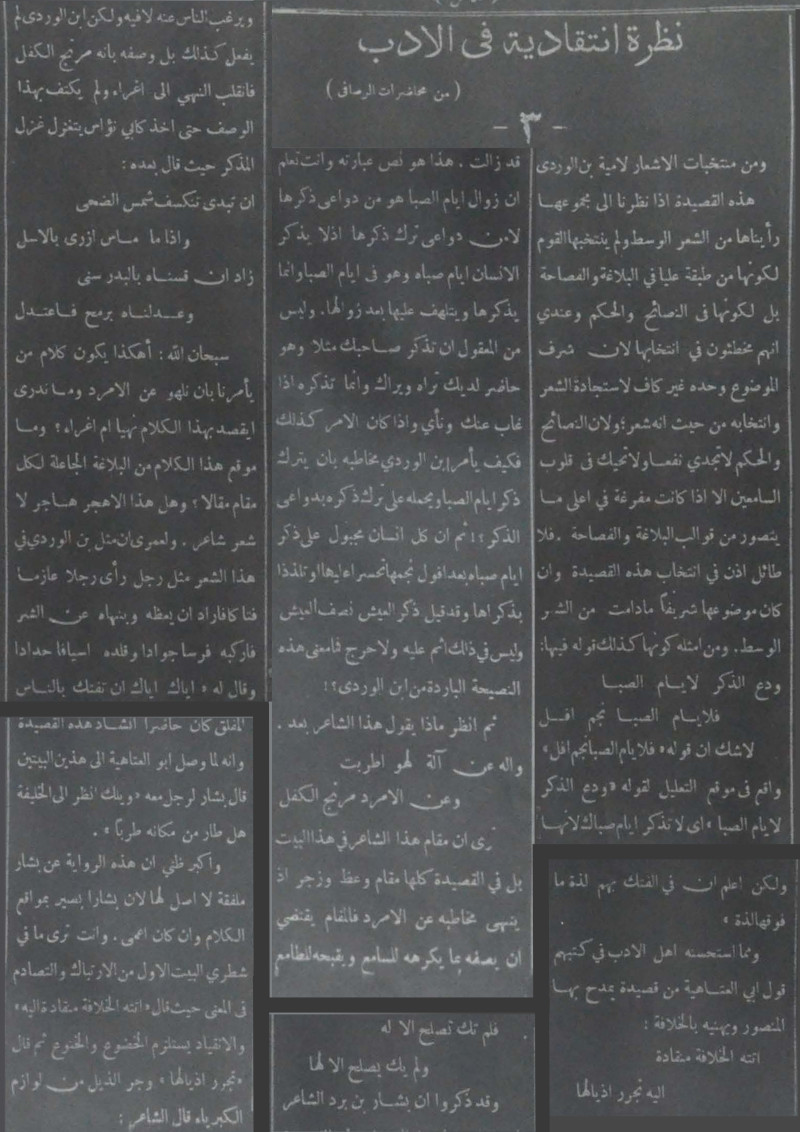 نظرة انتقادية فى الادب
( من محاضرات الرصافى )
- ٣ -
ومن منتخبات الاشعار لامية بن الوردى
هذه القصيدة اذا نظرنا الى مجموعهـا
رأيناها من الشعر الوسط ولم ينتخبها القوم
لكونها من طبقة عليا في البلاغة والفصاحة
بل لكونها فى النصائح والحكم وعندي
انهم مخطئون في انتخابها لان شرف
الموضوع وحده غير كاف لاستجادة الشعر
وانتخابه من حيث انه شعر؛ ولان النصائح
والحكم لاتجدي نفعـا ولاتحيك فى قلوب
السامعين الا اذا كانت مفرغة في اعلى مـا
يتصور من قوالب البلاغة والفصاحة . فلا
طائل اذن في انتخاب هذه القصيدة وان
كان موضوعها شريفاً مادامت من الشـر
الوسط. ومن امثله كونها كذلك قوله فيها:
ودع الذكر لايـام الصبـا
فلايـام الصبـا نجم افـل
لاشك ان قوله « فلايام الصبا نجم افل»
واقع فى موقع التعليل لقوله «ودع الذكر
لايام الصبا » اى لاتذكر ايام صباك لانهـا
قد زالت . هذا هو نص عبارته وانت تعلم
ان زوال ايام الصبا هو من دواعى ذكرها
لامن دواعى ترك ذكرها اذلا يذكر
الانسان ايام صباه وهو فى ايام الصبا وانما
يذكرها ويتلهف عليها بعد زوالها. وليس
من المعقول ان تذكر صـاحبك مثلا وهو
حاضر لديك تراه ويراك وانما تذكره اذا
غاب عنك ونأي واذا كان الامر كـذلك
فكيف يأمر ابن الوردي مخاطبه بان يترك
ذكر ايام الصبا ويحمله على ترك ذكره بدواعى
الذكر ؟! ثم ان كل انسان مجبول على ذكر
ايام صباه بعد افول نجمها تحسرا عليها او تلذذا
بذكراها وقد قيل ذكر العيش نصف العيش
وليس في ذلك اثم عليه ولا حرج فامعنى هذه
النصيحة الباردة من ابن الوردى؟!
ثم انظر ماذا يقول هذا الشاعر بعد .
واله عن آلة لهو اطربت
وعن الامرد مرتج الكفل
ترى ان مقام هذا الشاعر في هذا البيت
بل في القصيدة كلها مقام وعظ وزجر اذ
ينهى مخاطبه عن الامرد فالمقام يقتضي
ان يصفه بما يكرهه للسامع ويقبحه للطامع
ويرغب الناس عنه لافيه ولكن ابن الوردى لم
يفعل كذلك بل وصفه بانه مرتج الكفل
فانقلب النهي الى اغراء ولم يكتف بهذا
الوصف حتى اخذ كابي نؤاس يتغزل غزل
المذكر حيث قال بعده :
ان تبدى تنكسف شمس الضحى
واذا ما مـاس ازرى بالاسل
زاد ان قسنـاه بالبدر سنى
وعـدلنـاه برمح فـاعتـدل
سبحان الله : أهكذا يكون كلام من
يأمرنا بان نلهو عن الامرد ومـا ندرى
ايقصد بهذا الكلام نهيا ام اغراء؟ ومـا
موقع هذا الكلام من البلاغة الجاعلة لكل
مقام مقالا ؟ وهل هذا الاهجر هـاجر لا
شعر شاعر . ولعمرى ان مثل بن الوردي في
هذا الشعر مثل رجل رأى رجلا عازمـا
فتاكا فاراد ان يعظه وينهاه عن الشر
فاركبه فرسا جوادا وقلده اسيافا حدادا
وقال له « اياك اياك ان تفتك بالنـاس
ولكن اعلم ان في الفتك بهم لذة ما
فوقها لذة »
ومما استحسنه اهل الادب في كتبهم
قول ابي العتـاهية من قصيدة يمدح بهـا
المنصور ويهنيه بالخلافة :
اتته الخلافة منقادة
اليه تجرر اذيالها
فلم تك تصلح الا له
ولم يك يصلح الا لها
وقد ذكروا ان بشـار بن برد الشاعر
المفلق كان حاضرا انشـاد هذه القصيدة
وانه لما وصل ابو العتاهية الى هذين البيتين
قال بشار لرجل معه «ويلك انظر الى الخليفة
هل طار من مكانه طرباً » .
واكبر ظني ان هذه الرواية عن بشار
ملفقة لا اصل لها لان بشارا بسير بمواقع
الكلام وان كان اعمى . وانت ترى ما في
شطري البيت الاول من الارتباك والتصادم
فى المعنى حيث قال «اتته الخلافة منقادة اليه»
والانقياد يستلزم الخضوع والخنوع ثم قال
«تجرر اذيالها » وجر الذيل من لوازم
الكبرياء قال الشاعر :